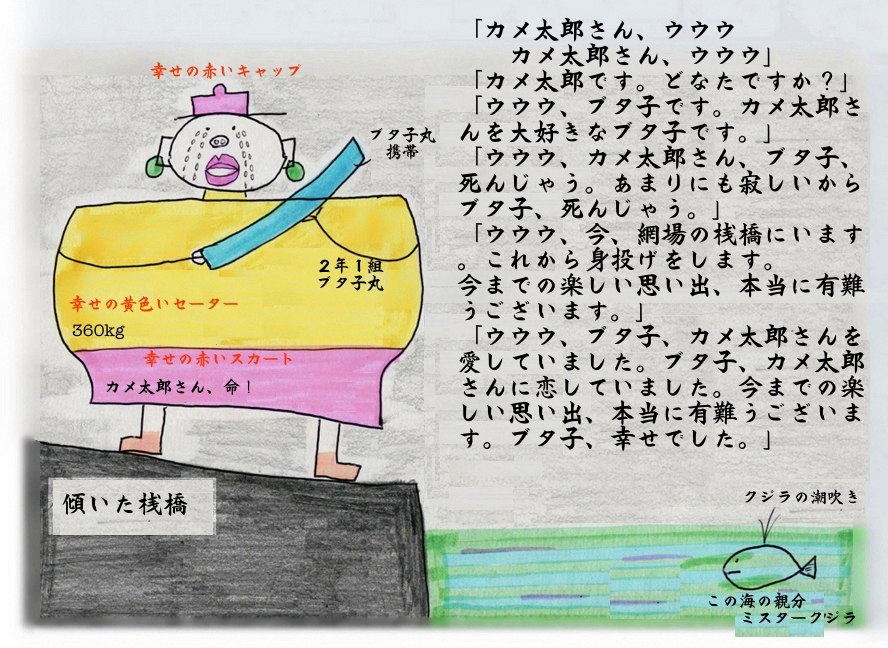 幸せの赤いキャップ
ブタ子丸
携帯
２年１組
ブタ子丸
幸せの黄色いセーター
360kg
幸せの赤いスカート
カメ太郎さん、命！
傾いた桟橋
「カメ太郎さん、ウウウ
カメ太郎さん、ウウウ」
「カメ太郎です。どなたですか？」
「ウウウ、ブタ子です。カメ太郎さ
んを大好きなブタ子です。」
「ウウウ、カメ太郎さん、ブタ子、
死んじゃう。あまりにも寂しいから
ブタ子、死んじゃう。」
「ウウウ、今、網場の桟橋にいます
。これから身投げをします。
今までの楽しい思い出、本当に有難
うございます。」
「ウウウ、ブタ子、カメ太郎さんを
愛していました。ブタ子、カメ太郎
さんに恋していました。今までの楽
しい思い出、本当に有難うございま
す。ブタ子、幸せでした。」
クジラの潮吹き
この海の親分
ミスタークジラ